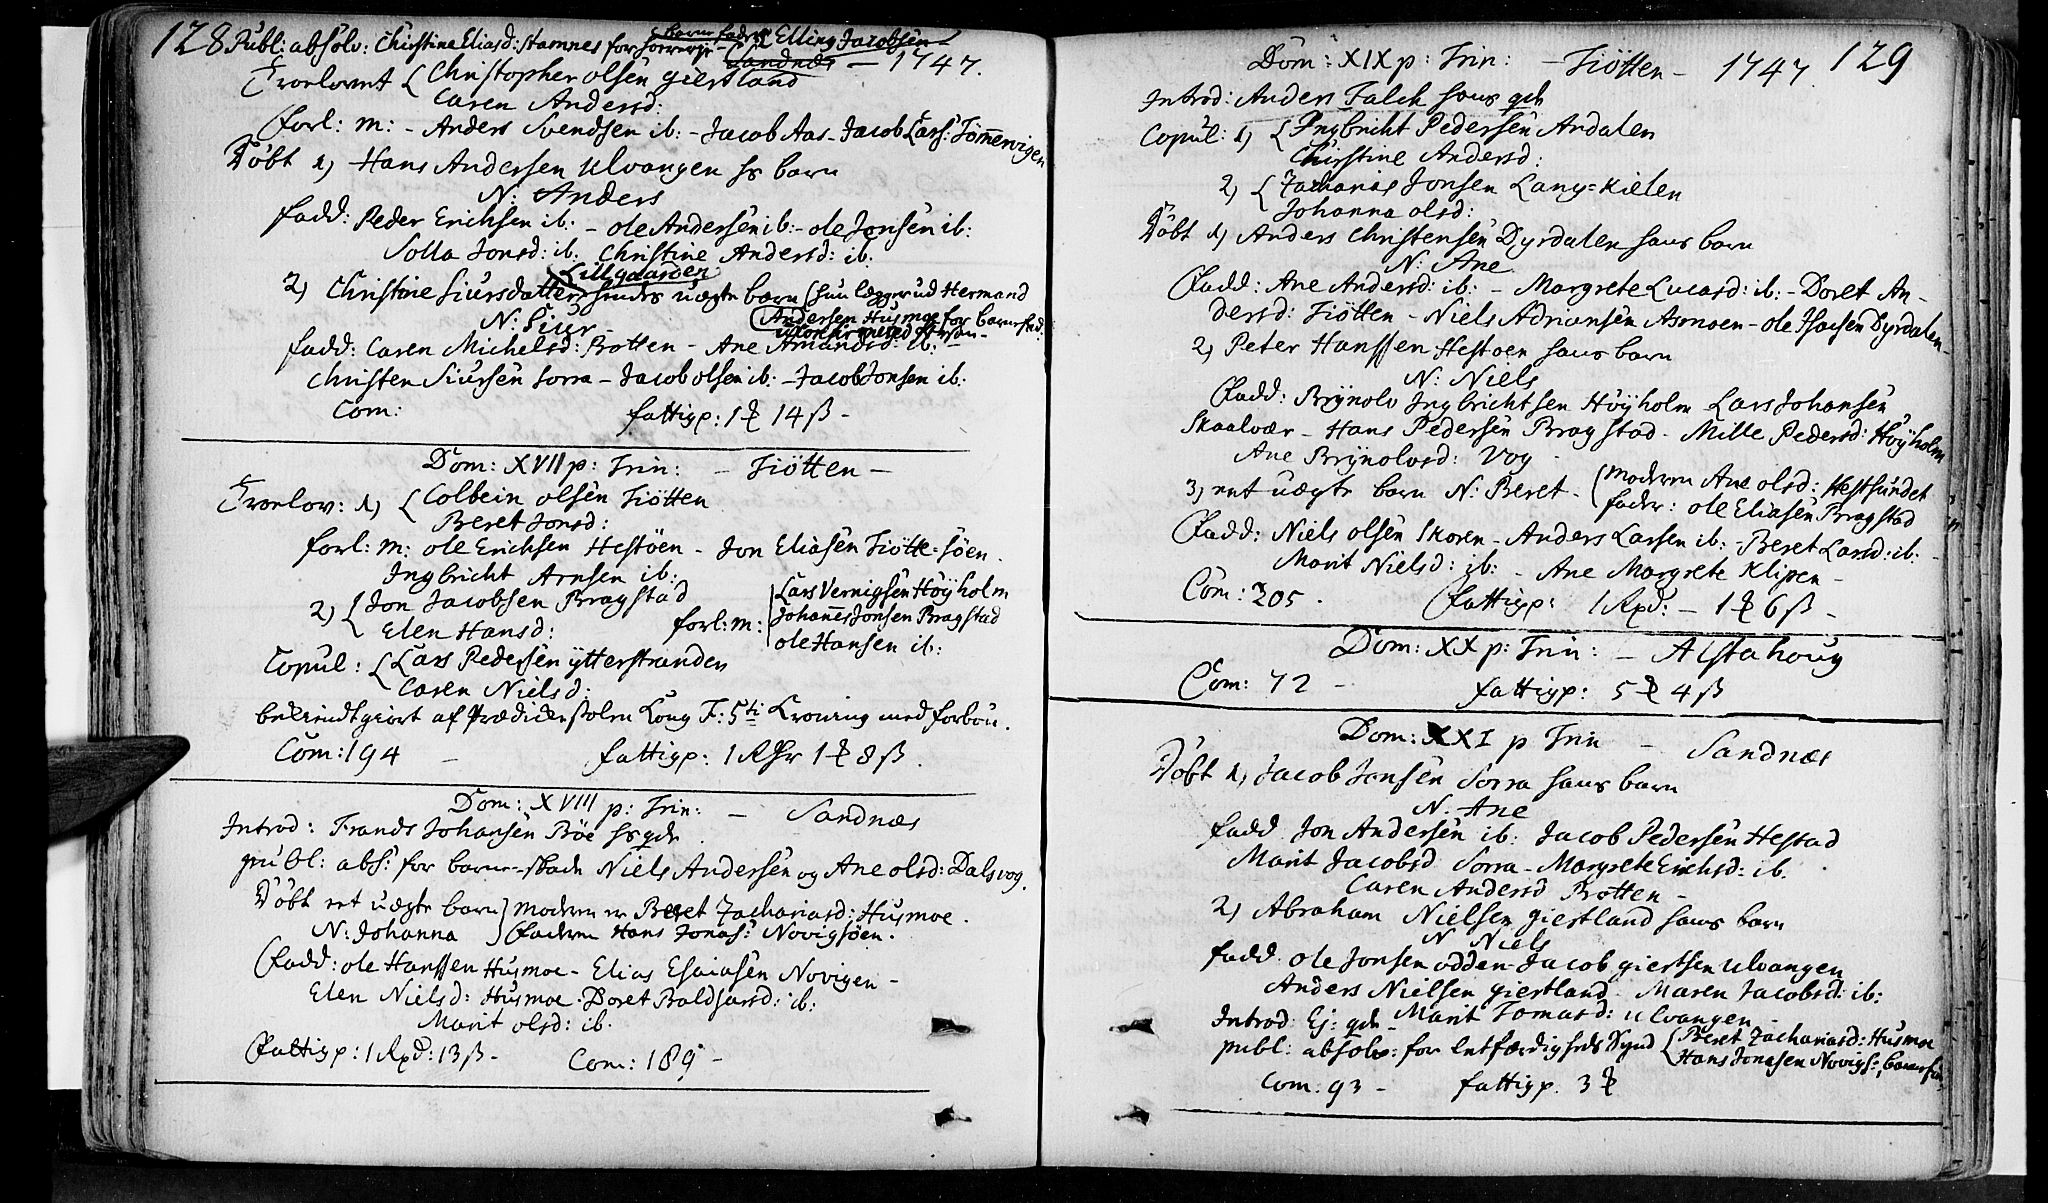 128 Publ: absolv: Christine Eliasd: Stamnes for hoererie barnefader Elling Jacobsen
Sandnæs — 1747.
Troelovet { Christopher olsen giertland
Caren Andersd:
forl: m: - Anders Svendsen ib: - Jacob Aas - Jacob Lars: Tømmervigen
Døbt 1) Hans Andersen Ulvangen hs barn
N: Anders
fadd: Peder Erichsen ib: - ole Andersen ib: - ole Jonsen ib:
Solla Jonsd: ib. Christine Andersd: ib:
Lillgaarden
2) Christine Siursdatter hendes uægte barn (hun legger ud Hermand
N: Siur - Andersen Husmoe for barnefad:
fadd: Caren Michelsd: Brotten - Ane Amundsd: ib: -
Christen Siursen Sorra - Jacob olsen ib: - Jacob Jonsen ib:
Com: fattigp: 1 ƶ 14 ß -
Dom: XVII p: Trin: - Tiøtten -
Troelov: 1) { Colbein olsen Tiøtten
Beret Jonsd:
forl: m: ole Erichsen Hestøen - Jon Eliasen Tiøtt-søen.
Ingbricht Arnsen ib:
2) { Jon Jacobsen Bragstad
Elen Hansd: forl: m: | Lars Vernigsen Høyholm
Johannes Jonsen Bragstad
ole Hansen ib:
Copul: { Lars Pedersen ytterstranden
Caren Nielsd:
bekiendtgiort af Prædickestolen Kong F: 5ti Croning med forbøn.
Com: 194 - fattigp: 1 Rdr 1 ƶ 8 ß.
Dom: XVIII p: Trin: - Sandnæs
Introd: Frands Johansen Bøe hs qde
publ: abs: for barne-skade Niels Andersen og Ane olsd: Dalsvog.
Døbt ret uægte barn } moderen er Beret Zachariasd: Husmoe.
N: Johanna } faderen Hans Jonas: Novigsøen.
fadd: ole Hanssen Husmoe - Elias Esaiasen Novigen -
Elen Nielsd: Husmoe - Doret Baldsersd: ib:
Marit olsd: ib.
fattigp: 1 Rxd: 13 ß - Com: 189 -
Dom: XIX p: Trin: - Tiøtten - 1747. 129
Introd: Anders Falch hans qde
Copul: 1) { Ingbricht Pedersen Andalen
Christine Andersd:
2) { Zacharias Jonsen Lang=Kielen
Johanna olsd:
Døbt 1) Anders Christensen Dyrdalen hans barn
N: Ane
Fadd: Ane Andersd: ib: - Margrete Lucasd: ib: - Doret An-
dersd: Tiøtten - Niels Adriansen Asmoen - ole Isacsen Dyrdalen
2) Peter Hanssen Hestøen hans barn
N: Niels
Fadd: Brynolv Ingbrichtsen Høyholm Lars Johansen
Skaalvær - Hans Pedersen Bragstad - Mille Pedersd: Høyholm
Ane Brynolvsd: Vog -
3) ret uægte barn N: Beret - ( moderen Ane olsd: Hestsundet
fader: ole Eliasen Bragstad
Fadd: Niels olsen Skoren - Anders Larsen ib: - Beret Larsd: ib: -
Marit Nielsd: ib: - Ane Margrete Klipen -
Com: 205. fattigp: 1 Rxd: - 1 ƶ 6 ß -
Dom: XX p: Trin: - Alstahoug
Com: 72 - fattigp: 5 ƶ 4 ß
Dom: XXI p Trin - Sandnæs
Døbt 1) Jacob Jonsen Sorra hans barn
N: Ane
fadd Jon Andersen ib: Jacob Pedersen Hestad
Marit Jacobsd Sorra - Margrete Erichsd: ib.
Caren Andersd Brotten -
2) Abraham Nielsen giertland hans barn
N Niels
fadd. ole Jonsen odden - Jacob giertsen Ulvangen
Anders Nielsen giertland Maren Jacobsd: ib:
Introd Ej: qde - Marit Tomasd: Ulvangen -
publ: absolv: for letfærdigheds Synd { Beret Zachariasd: Husmoe
Hans Jonasen Novigs:, barnef
Com: 93 - fattigp. 3 ƶ